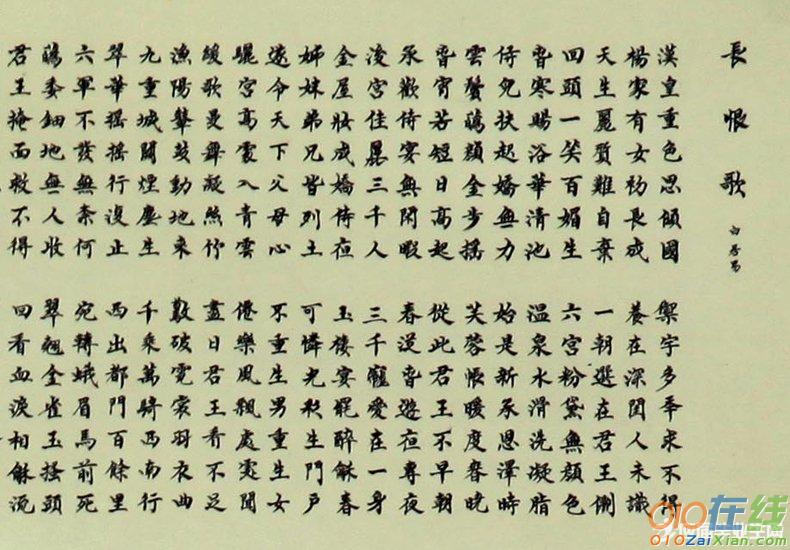 長恨歌
白居易
漢皇重色思傾國 禦宇多年求不得
楊家有女初長成 養在深閨人未識
天生麗質難自棄 一朝選在君王側
回頭一笑百媚生 六宮粉黛無顏色
春寒賜浴華清池 溫泉水滑洗凝脂
侍兒扶起嬌無力 始是新承恩澤時
雲鬢蘤顏金步搖 芙蓉帳暖度春曉
春宵苦短日高起 從此君王不早朝
承歡侍宴無閑暇 春從春遊夜專夜
後宮佳麗三千人 三千寵愛在一身
金屋妝成嬌侍夜 玉樓宴罷醉龢春
姊妹弟兄皆列土 可憐光彩生門戶
遂令天下父母心 不重生男重生女
驪宮高處入青雲 僊樂風飄處處聞
緩歌曼舞凝絲竹 盡日君王看不足
漁陽鼙鼓動地來 驚破霓裳羽衣曲
九重城闕煙塵生 千乘萬騎西南行
翠華搖搖行復止 西出都門百餘里
六軍不發無奈何 宛轉蛾眉馬前死
蘤委鈿地無人收 翠翹金雀玉搔頭
君王掩面救不得 回看血淚相龢流
010在线
010ZaiXian.com